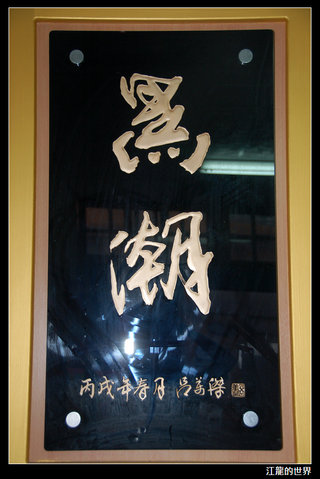 黑
潮
丙戌年春月 呂義濚
江龍的世界